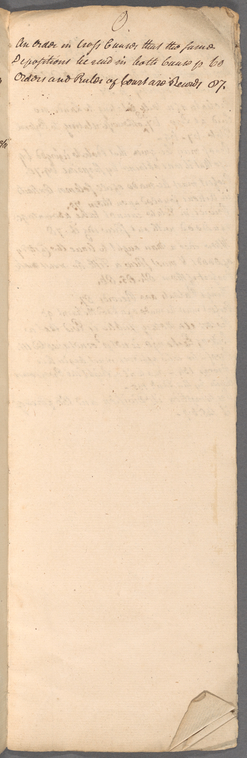 O
An order in Cross Causes that the same
Depositions be read in both Causes p. 60
Orders and Rules of Court are Records 87.